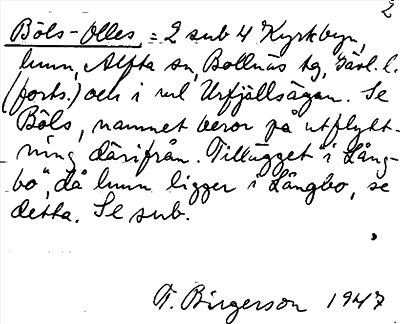 2
Böls-Olles = 2 sub 4 Kyrkbyn,
hmn, Alfta sn, Bollnäs tg, Gävl. l.
(forts.) och i rul Urfjällsägan. Se
Böls, namnet beror på utflytt-
ning därifrån. Tillägget "i Lång-
bo", då hmn ligger i Långbo, se
detta. Se sub.
T. Birgerson 1947